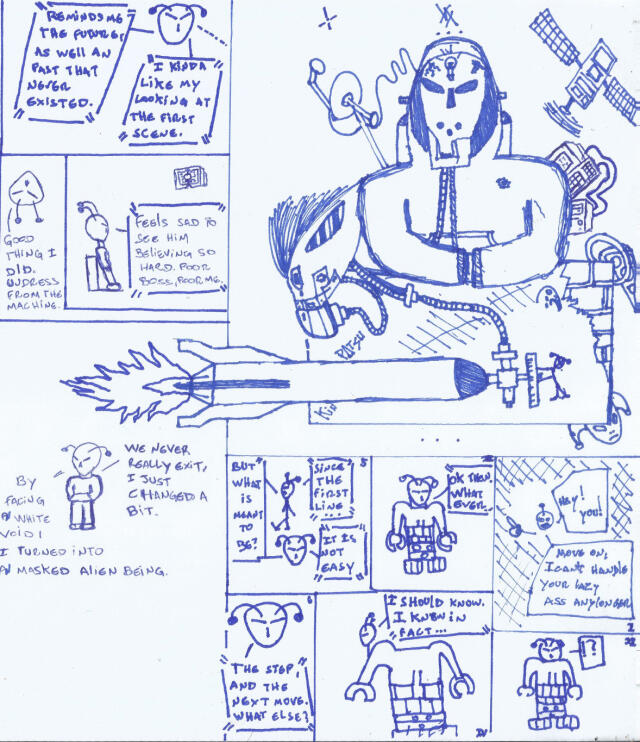 REMINDS ME
THE FUTURE,
AS WELL AN
PAST THAT
NEVER
EXISTED.
I KINDA
LIKE MY
LOOKING AT
THE FIRST
SCENE.
GOOD
THING I
DID.
UNDRESS
FROM THE
MACHINE.
FEELS SAD TO
SEE HIM
BELIEVING SO
HARD. POOR
BOSS, POOR ME.
BY
FACING
A WHITE
VOID I
I TURNED INTO
A MASKED ALIEN BEING.
WE NEVER
REALLY EXIT,
I JUST
CHANGED A
BIT.
BUT
WHAT
IS
MEANT
TO
BE?
SINCE
THE
FIRST
LINE
...
5
IT IS
NOT
EASY
OK THEN.
WHAT
EVER...
HEY!
YOU!
MOVE ON,
I CAN'T HANDLE
YOUR LAZY
ASS ANYLONGER
6
THE STEP,
AND THE
NEXT MOVE.
WHAT ELSE?
I SHOULD KNOW.
I KNEW IN
FACT...
IV
!?